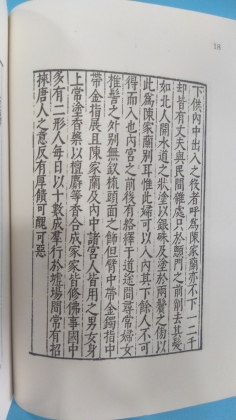 下供內中出入之役者呼為陳家蘭亦不下一二千
却皆有丈夫與民間雜處只於顖門之前削去其髮
如北人開水道之狀塗以銀硃及塗於兩鬢之傍以
此為陳家蘭別耳惟此婦可以入內其下餘人不可
得而入也內宮之前後有絡繹于道途間尋常婦女
推髻之外別無釵梳頭面之飾但臂中帶金鐲指中
帶金指展且陳家蘭及內中諸宮人皆用之男女身
上常塗香藥以檀麝等香合成家家皆修佛事國中
多有二形人每日以十數成羣行於墟場間常有招
捸唐人之意反有厚饋可醜可惡